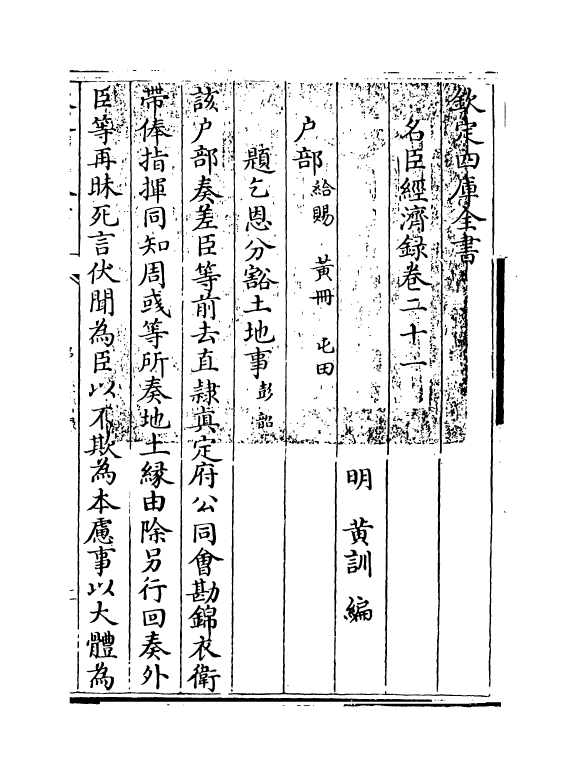 欽定四庫全書
名臣經濟録卷二十一
明 黄訓 編
户部給賜 黄冊 屯田
題乞恩分豁土地事彭韶
該户部奏差臣等前去直隷真定府公同會勘錦衣衛
帶俸指揮同知周彧等所奏地土緣由除另行回奏外
臣等再昧死言伏聞為臣以不欺為本慮事以大體為